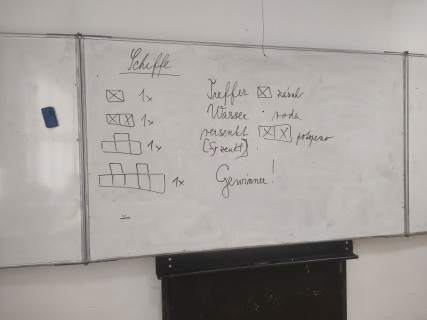 Schiffe
1x
1x
1x
1x
Treffer zásah
Wasser · voda
versenkt potopeno
Gewinner!